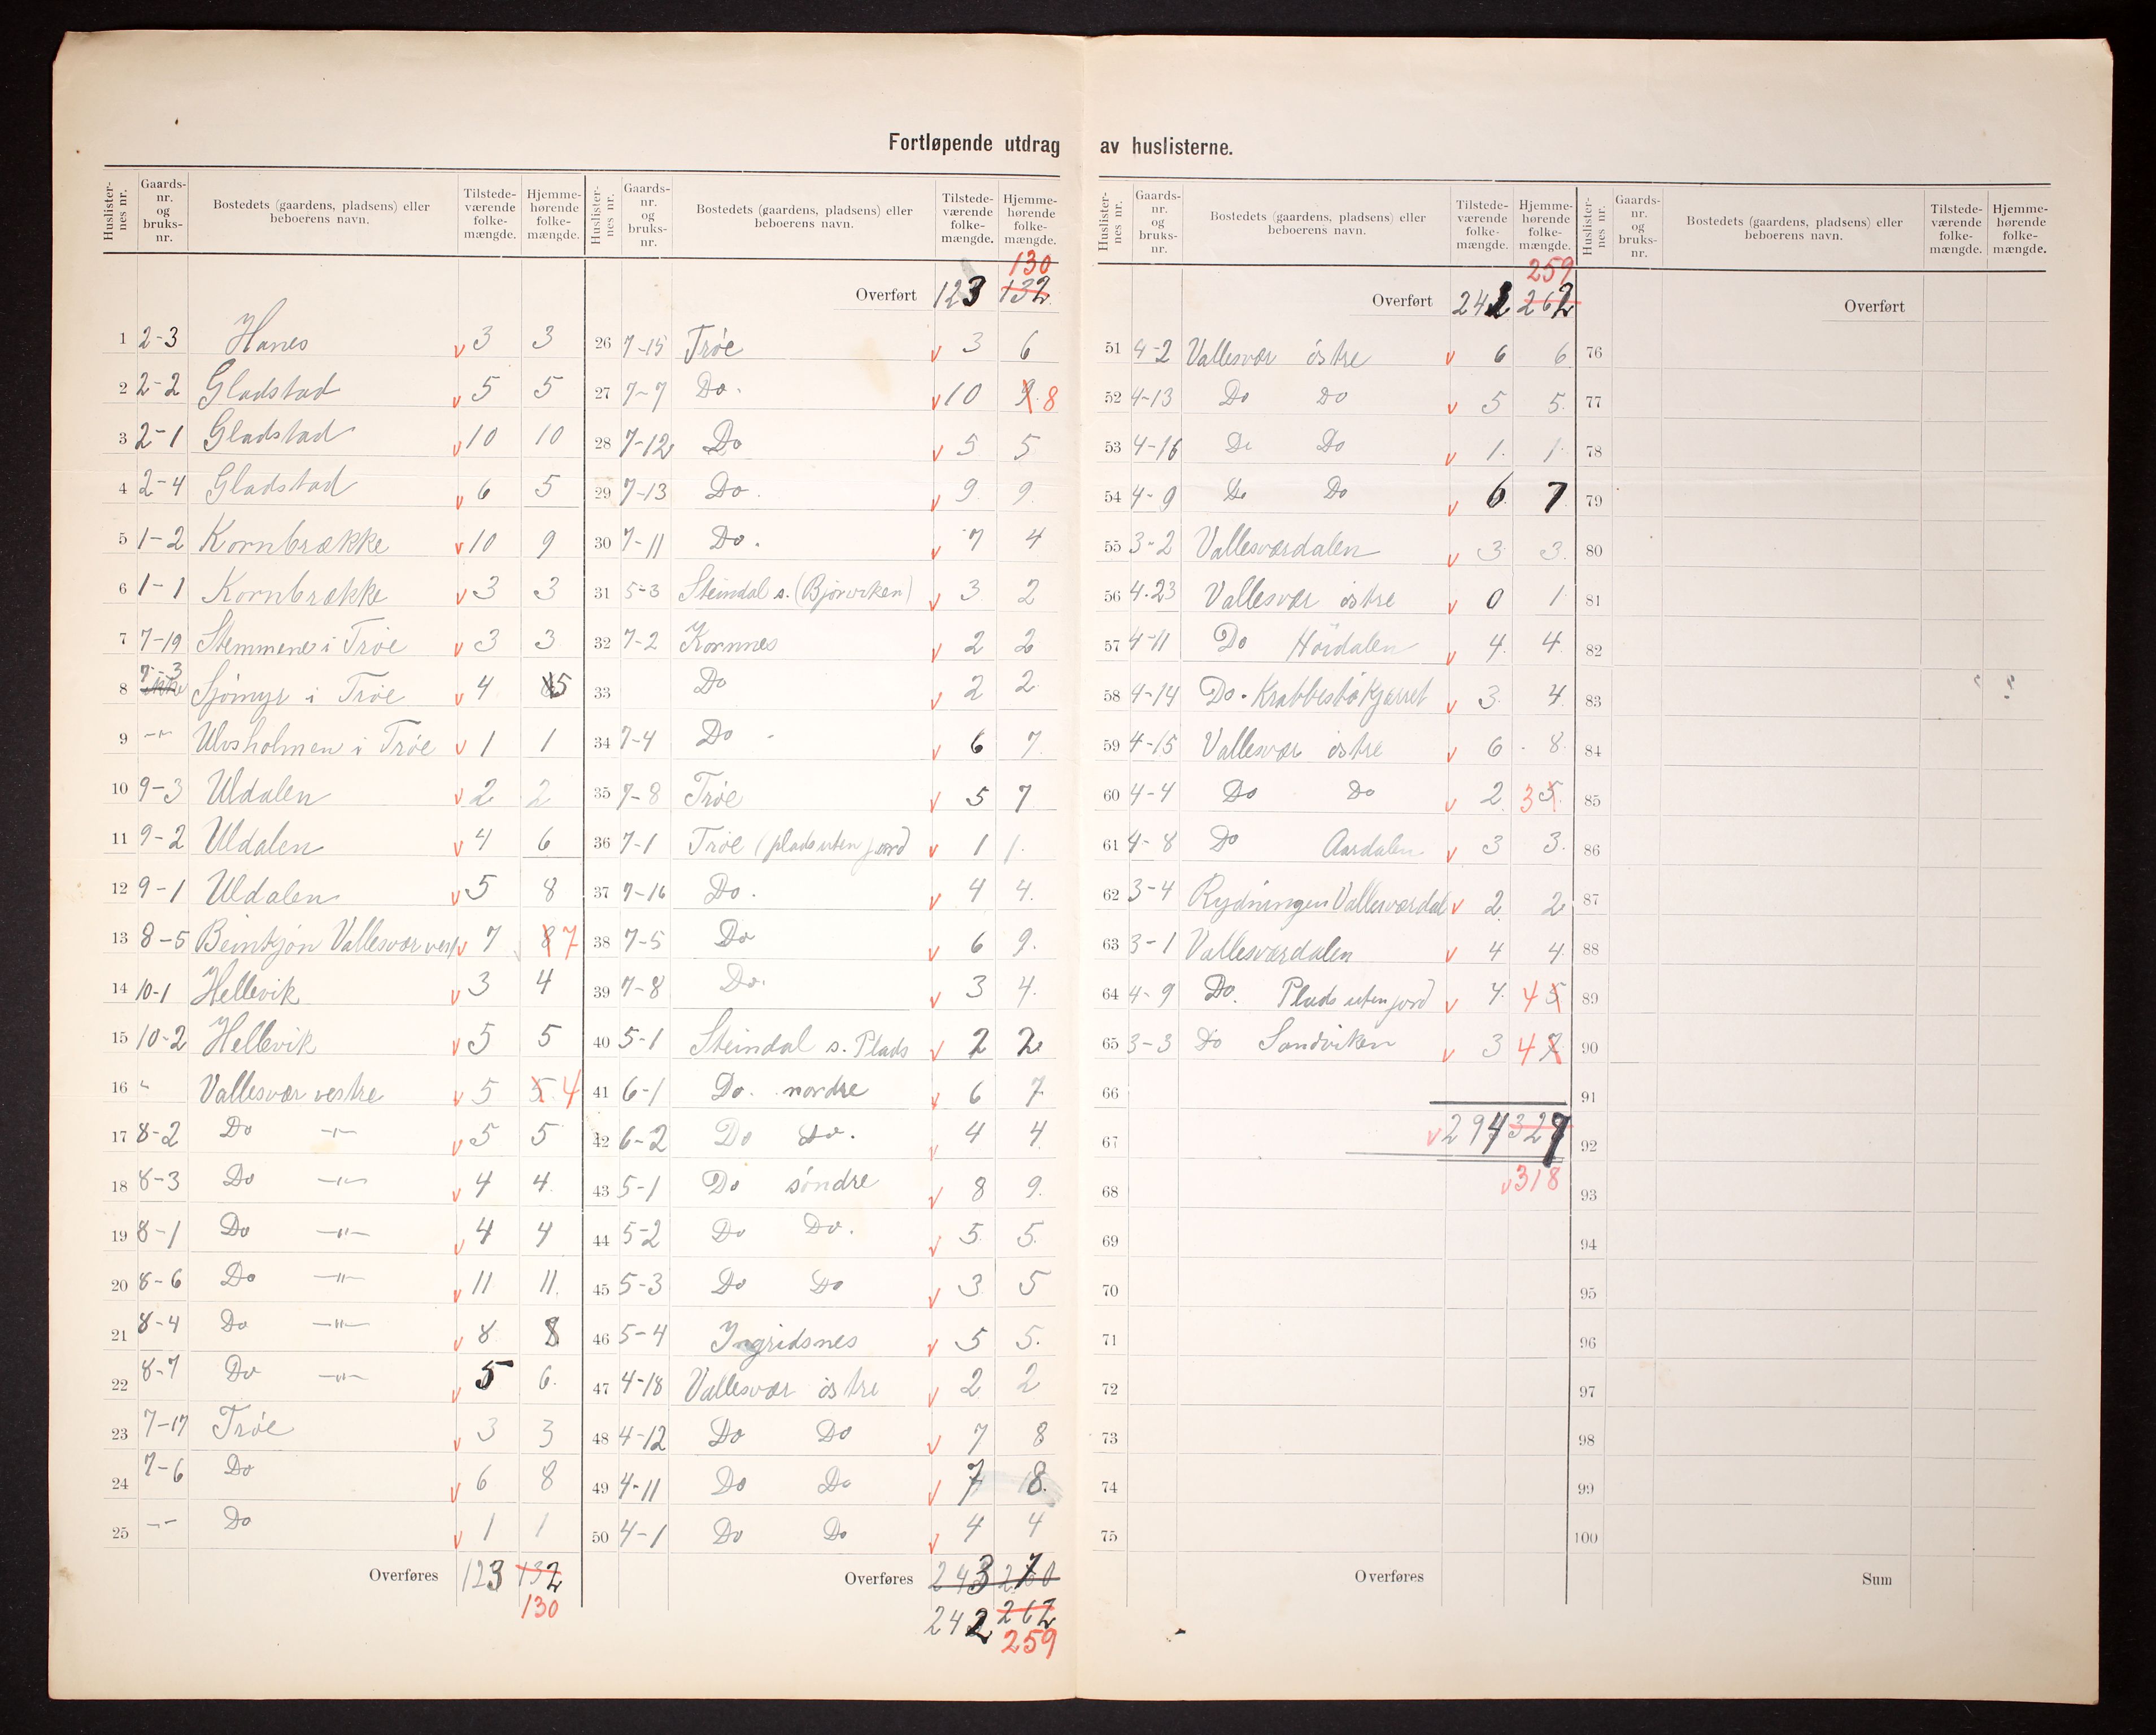 Fortløpende utdrag av huslisterne.
Huslisternes nr. Gaards-nr. og bruks-nr. Bostedets (gaardens, pladsens) eller beboerens navn. Tilstede-værende folke-mængde. Hjemme-hørende folke-mængde.
1 2-3 Hanes v 3 3
2 2-2 Gladstad v 5 5
3 2-1 Gladstad v 10 10
4 2-4 Gladstad v 6 5
5 1-2 Kornbrække v 10 9
6 1-1 Kornbrække v 3 3
7 7-19 Stemmene i Trøe v 3 3
8 7-3 Sjömyr i Trøe v 4 5
9 -"- Ulvsholmen i Trøe v 1 1
10 9-3 Uldalen v 2 2
11 9-2 Uldalen v 4 6
12 9-1 Uldalen v 5 8
13 8-5 Beintjön Vallesvær vest v 7 8 7
14 10-1 Hellevik v 3 4
15 10-2 Hellevik v 5 5
16 " Vallesvær vestre v 5 5 4
17 8-2 Do -"- v 5 5
18 8-3 Do -"- v 4 4
19 8-1 Do -"- v 4 4
20 8-6 Do -"- v 11 11.
21 8-4 Do -"- v 8 8
22 8-7 Do -"- v 5 6.
23 7-17 Trøe v 3 3
24 7-6 Do v 6 8
25 -"- Do v 1 1
Overføres 123 132
130
Huslisternes nr. Gaards-nr. og bruks-nr. Bostedets (gaardens, pladsens) eller beboerens navn. Tilstede-værende folke-mængde. Hjemme-hørende folke-mængde.
130
Overført 123 132.
26 7-15 Trøe v 3 6
27 7-7 Do. v 10 9. 8
28 7-12 Do v 5 5
29 7-13 Do. v 9. 9.
30 7-11 Do. v 7 4
31 5-3 Steindal s. (Bjørviken) v 3 2
32 7-2 Kornnes v 2 2
33 Do v 2 2
34 7-4 Do - v 6 7.
35 7-8 Trøe v 5 7
36 7-1 Trøe (plads uten jord) v 1 1.
37 7-16 Do. v 4 4.
38 7-5 Do v 6 9.
39 7-8 Do. v 3 4.
40 5-1 Steindal s. Plads v 2 2
41 6-1 Do. nordre v 6 7
42 6-2 Do Do. v 4 4.
43 5-1 Do söndre v 8 9.
44 5-2 Do Do. v 5. 5.
45 5-3 Do Do v 3 5
46 5-4 Ingridsnes v 5 5.
47 4-18 Vallesvær østre v 2 2
48 4-12 Do Do v 7 8
49 4-11 Do Do v 7 8.
50 4-1 Do Do v 4 4
Overføres 243 270
242 262
259
Huslisternes nr. Gaards-nr. og bruks-nr. Bostedets (gaardens, pladsens) eller beboerens navn. Tilstede-værende folke-mængde. Hjemme-hørende folke-mængde.
259
Overført 242 262
51 4-2 Vallesvær östre v 6 6
52 4-13 Do Do v 5 5.
53 4-16 Do Do v 1. 1.
54 4-9 Do Do v 6. 7
55 3-2 Vallesværdalen v 3. 3.
56 4-23 Vallesvær østre v 0 1
57 4-11 Do Höidalen v 4. 4.
58 4-14 Do. Krabbestökjærret v 3. 4
59 4-15 Vallesvær østre v 6 . 8.
60 4-4 Do Do v 2 3 5.
61 4-8 Do Aardalen v 3 3.
62 3-4 Rydningen Vallesværdal v 2. 2
63 3-1 Vallesværdalen v 4 4.
64 4-9 Do. Plads uten jord v 4. 4 5
65 3-3 Do Sandviken v 3 4 7
66
67 v 294 327
68 v 318
69
70
71
72
73
74
75
Overføres
Huslisternes nr. Gaards-nr. og bruks-nr. Bostedets (gaardens, pladsens) eller beboerens navn. Tilstede-værende folke-mængde. Hjemme-hørende folke-mængde.
Overført
76
77
78
79
80
81
82
83
84
85
86
87
88
89
90
91
92
93
94
95
96
97
98
99
100
Sum